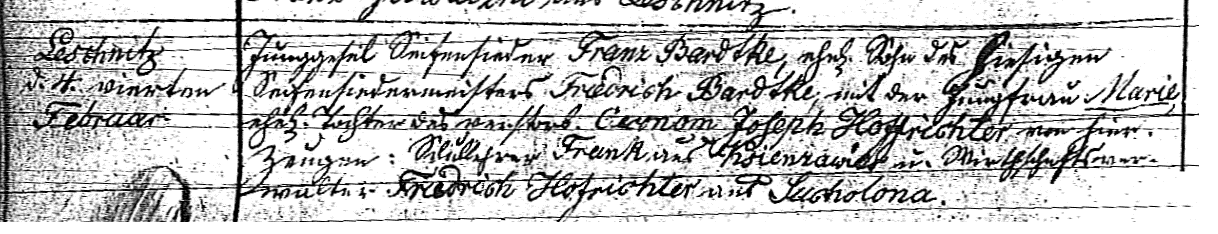 aus Leschnitz.
Leschnitz
d. 4. vierten
Februar
Junggesel Seifensieder Franz Bardtke, ehel. Sohn des hiesigen
Seifensiedermeisters Friedrich Bardtke, mit der Jungfrau Marie,
ehel. Tochter des verstorb. Oeconom Joseph Hoffrichter von hier.
Zeugen: Schullehrer Frank aus u. Wirthschaftsver-
walter Friedrich Hofrichter aus Sucholona.